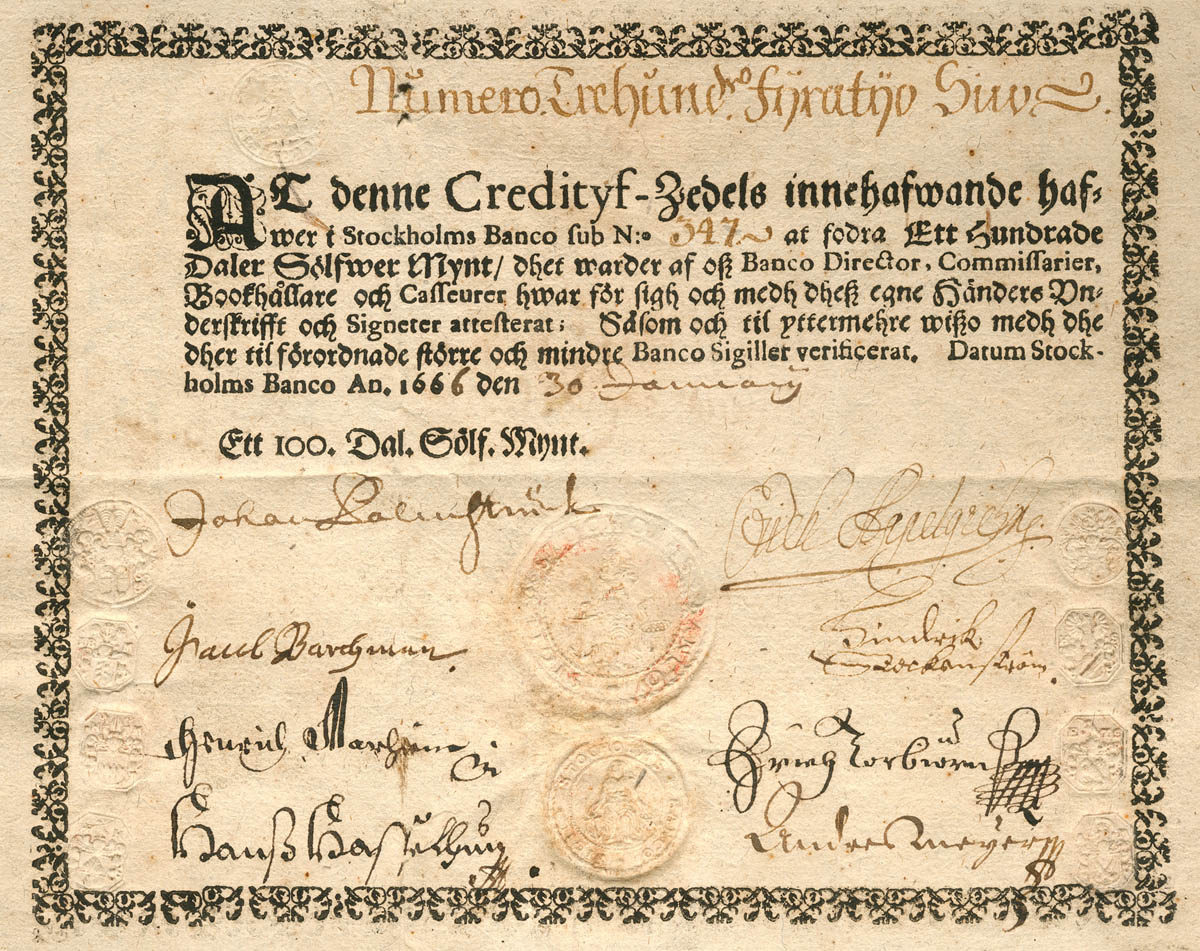 Numero. Trehund.ro fÿratÿo Siu
AT denne Credityf-Zedels innehafwande haf-
wer i Stockholms Banco sub N:o 347 at fodra Ett Hundrade
Daler Sölfwer Mynt/ dhet warder af oß Banco Director, Commissarier,
Bookhållare och Casseurer hwar för sigh och medh dheß egne Händers Vn-
derskrifft och Signeter attesterat; Såsom och til yttermehre wißo medh dhe
dher til förordnade större och mindre Banco Sigiller verificerat. Datum Stock-
holms Banco An. 1666 den 30 January
Ett 100. Dal. Sölf. Mynt.
Johan Palmstruck
Jacob Barchman.
Hindrik
Henrich
Erich Torbiörn
Hanß
Anders Meyer